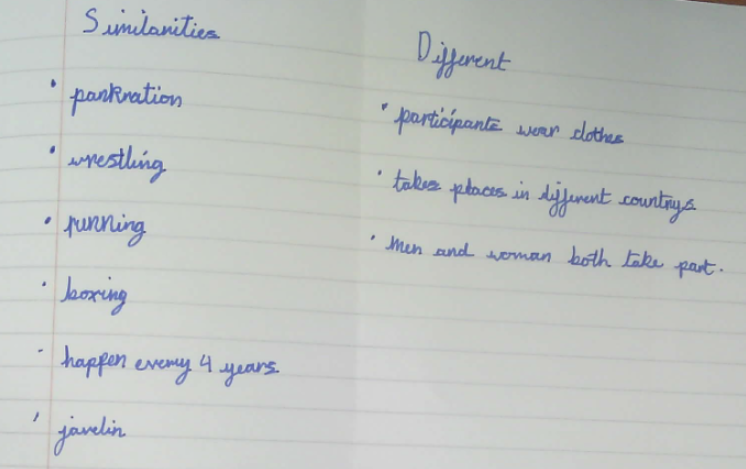 Similarities
• pankration
• wrestling
• running
• boxing
- happen every 4 years
• javelin
Different
• participants wear clothes
• takes places in different countrys
• men and woman both take part.